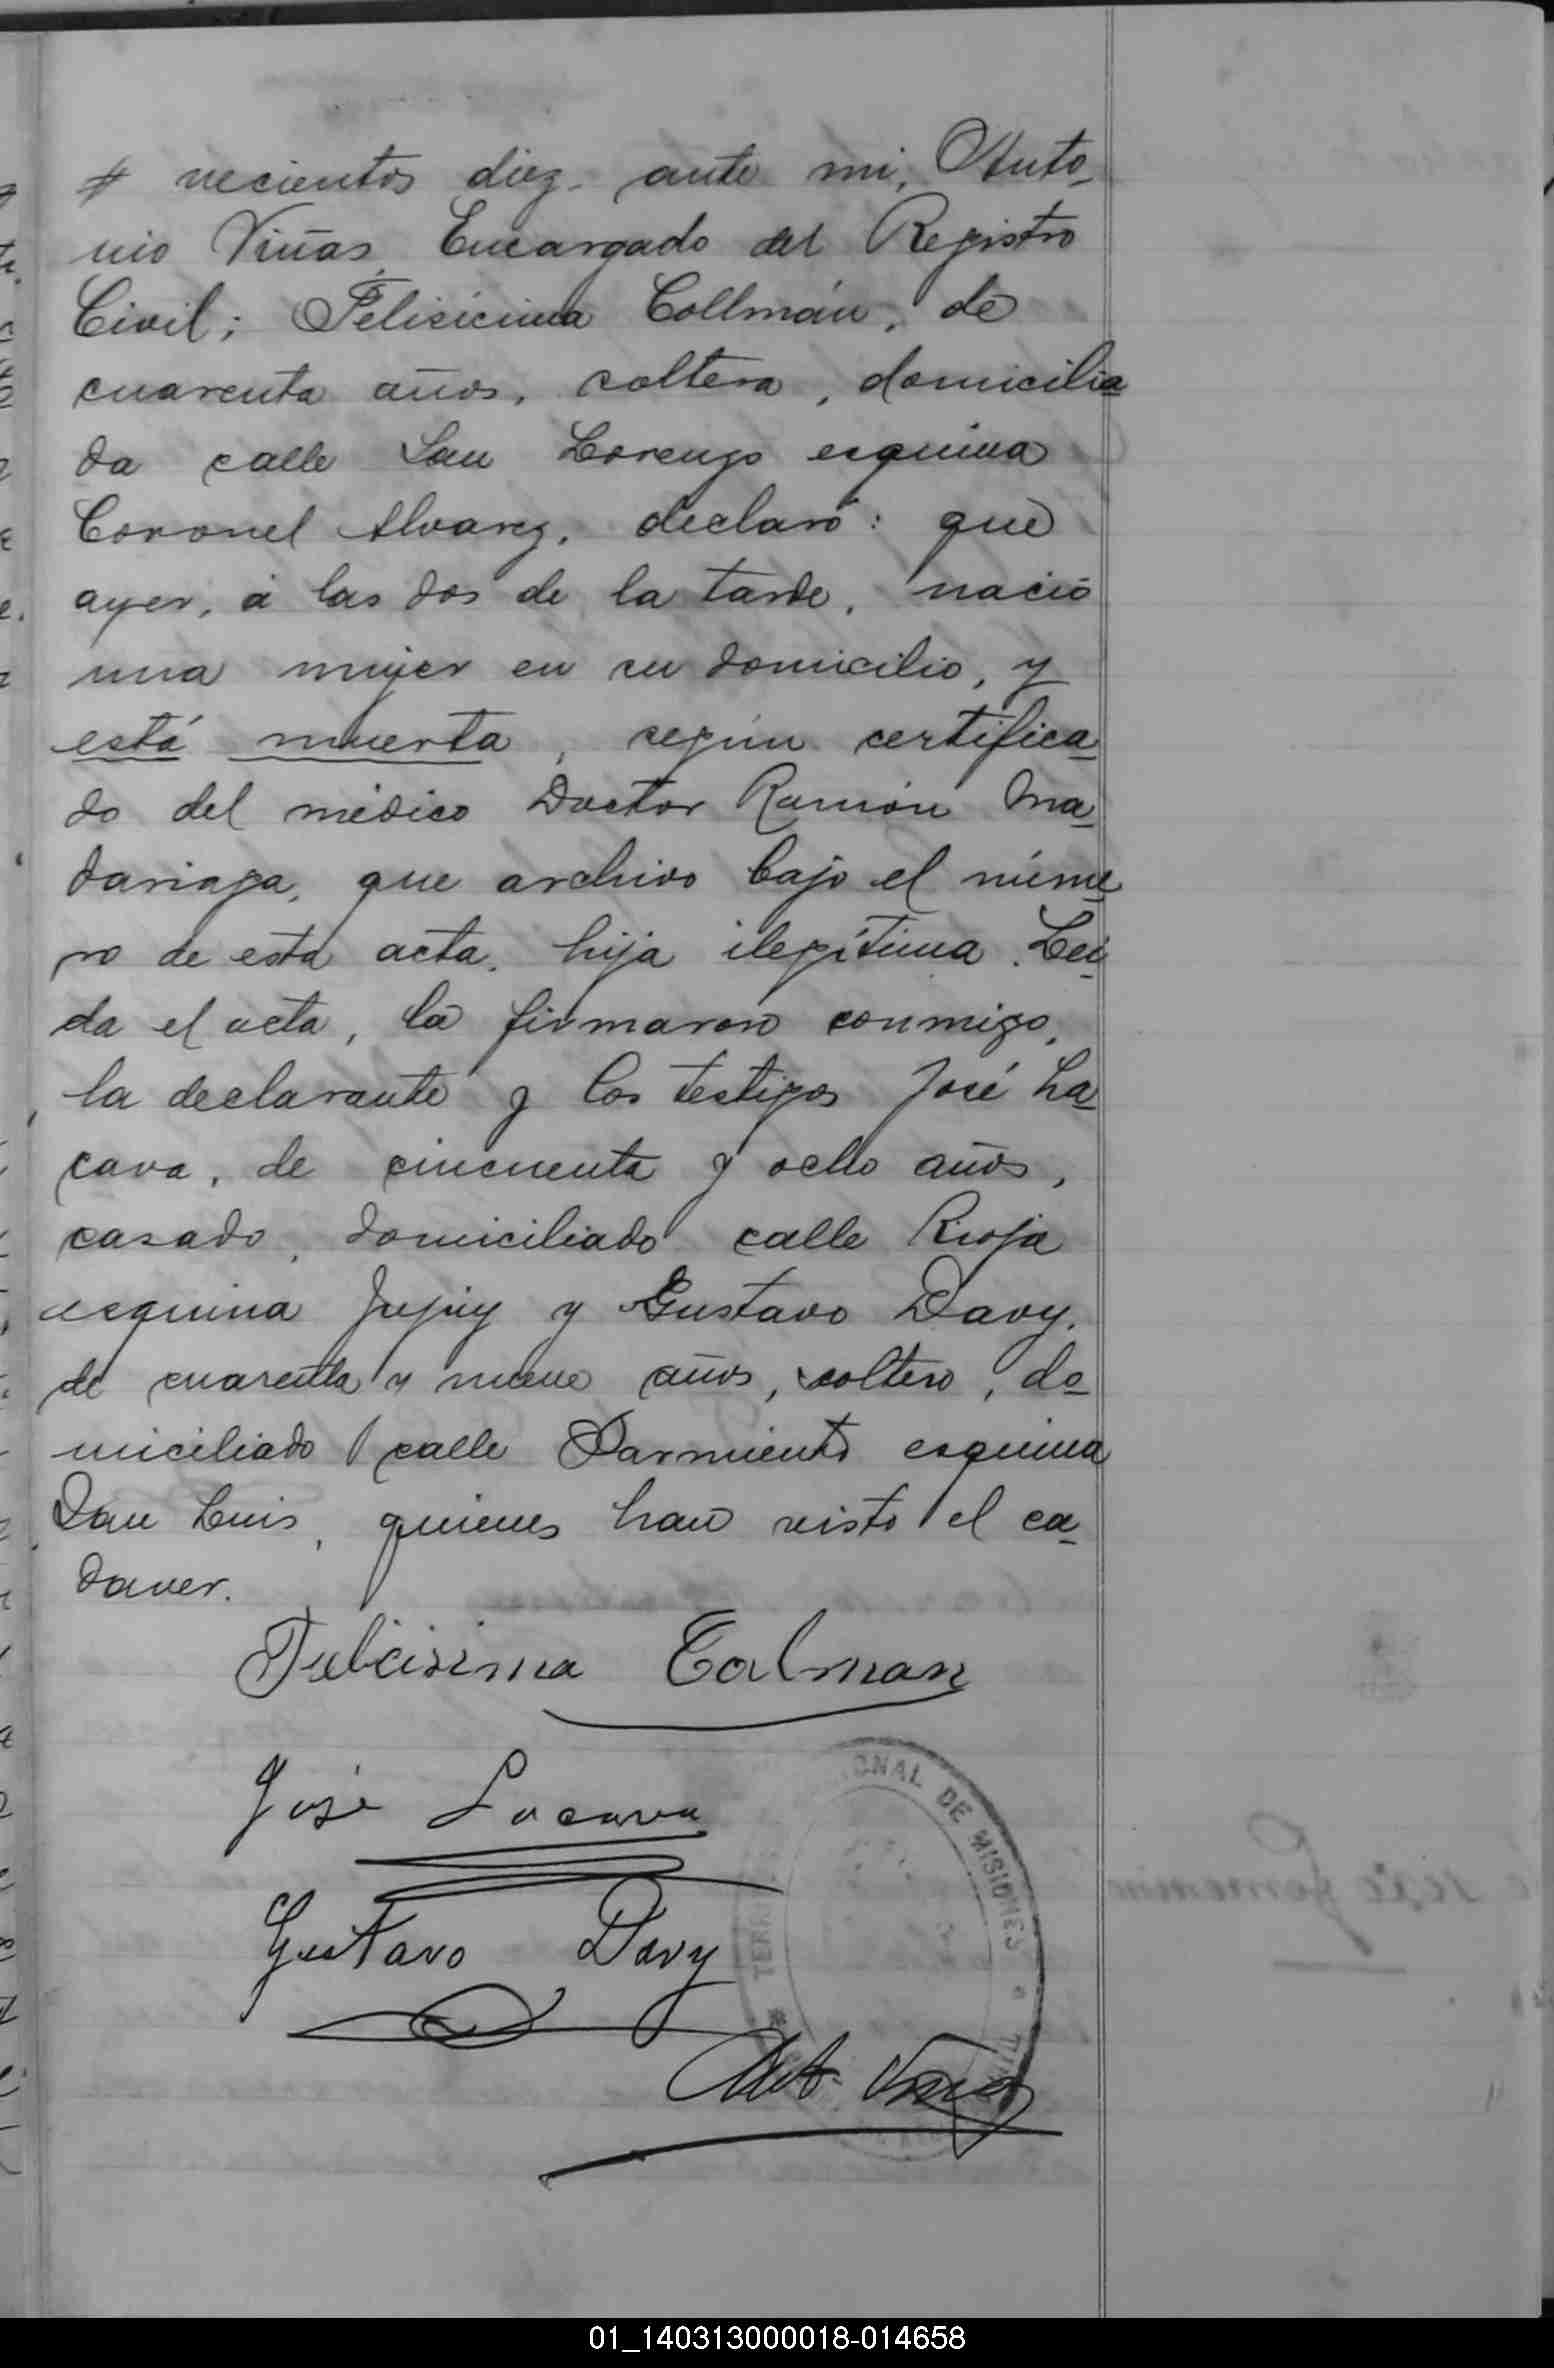 vecientos diez. ante mi, Anto-
nio Viñas, Encargado del Registro
Civil; Felisícima Collmán, de
cuarenta años, soltera, domicilia
da calle San Lorenzo esquina
Coronel Alvarez, declaró: que
ayer, á las dos de la tarde, nació
una mujer en su domicilio, y
está muerta, según certifica
do del médico Doctor Ramón Ma
dariaga, que archivo bajo el núme
ro de esta acta, hija ilegítima. Leí
da el acta, la firmaron conmigo,
la declarante y los testigos José La
cava, de cincuenta y ocho años,
casado, domiciliado calle Rioja
esquina Jujuy y Gustavo Davy,
de cuarenta y nueve años, soltero, do
miciliado calle Sarmiento esquina
San Luis, quienes han visto el ca-
daver.
Felicisima Calman
José Lacava
Gustavo Davy
Ant. Viñas
DE MISIONES
01_140313000018-014658